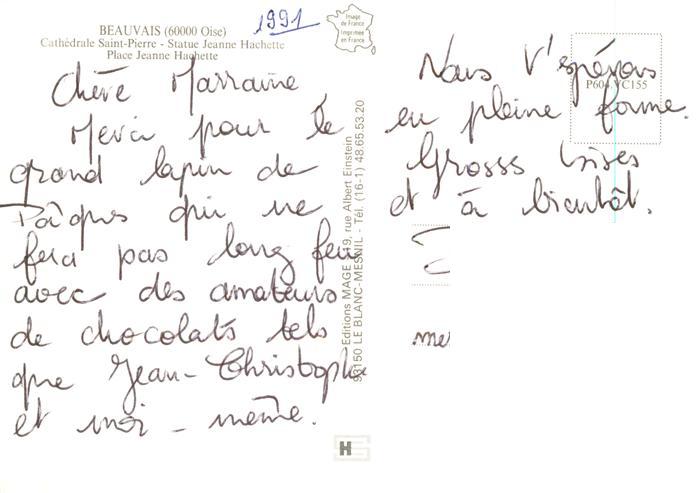 BEAUVAIS (60000 Oise)
Cathédrale Saint-Pierre - Statue Jeanne Hachette
Place Jeanne Hachette
1991
Image
de France
Imprimée
en France
Chère Marraine,
Merci pour le
grand lapin de
Pâques qui ne
fera pas long feu
avec des amateurs
de chocolats tels
que Jean-Christophe
et moi-même.
Editions MAGE - 19, rue Albert Einstein
93150 LE BLANC-MESNIL - Tél. (16-1) 48.65.53.20
H
P604 VC155
Nous t'espérons
en pleine forme.
Grosss bises
et à bientôt.
me